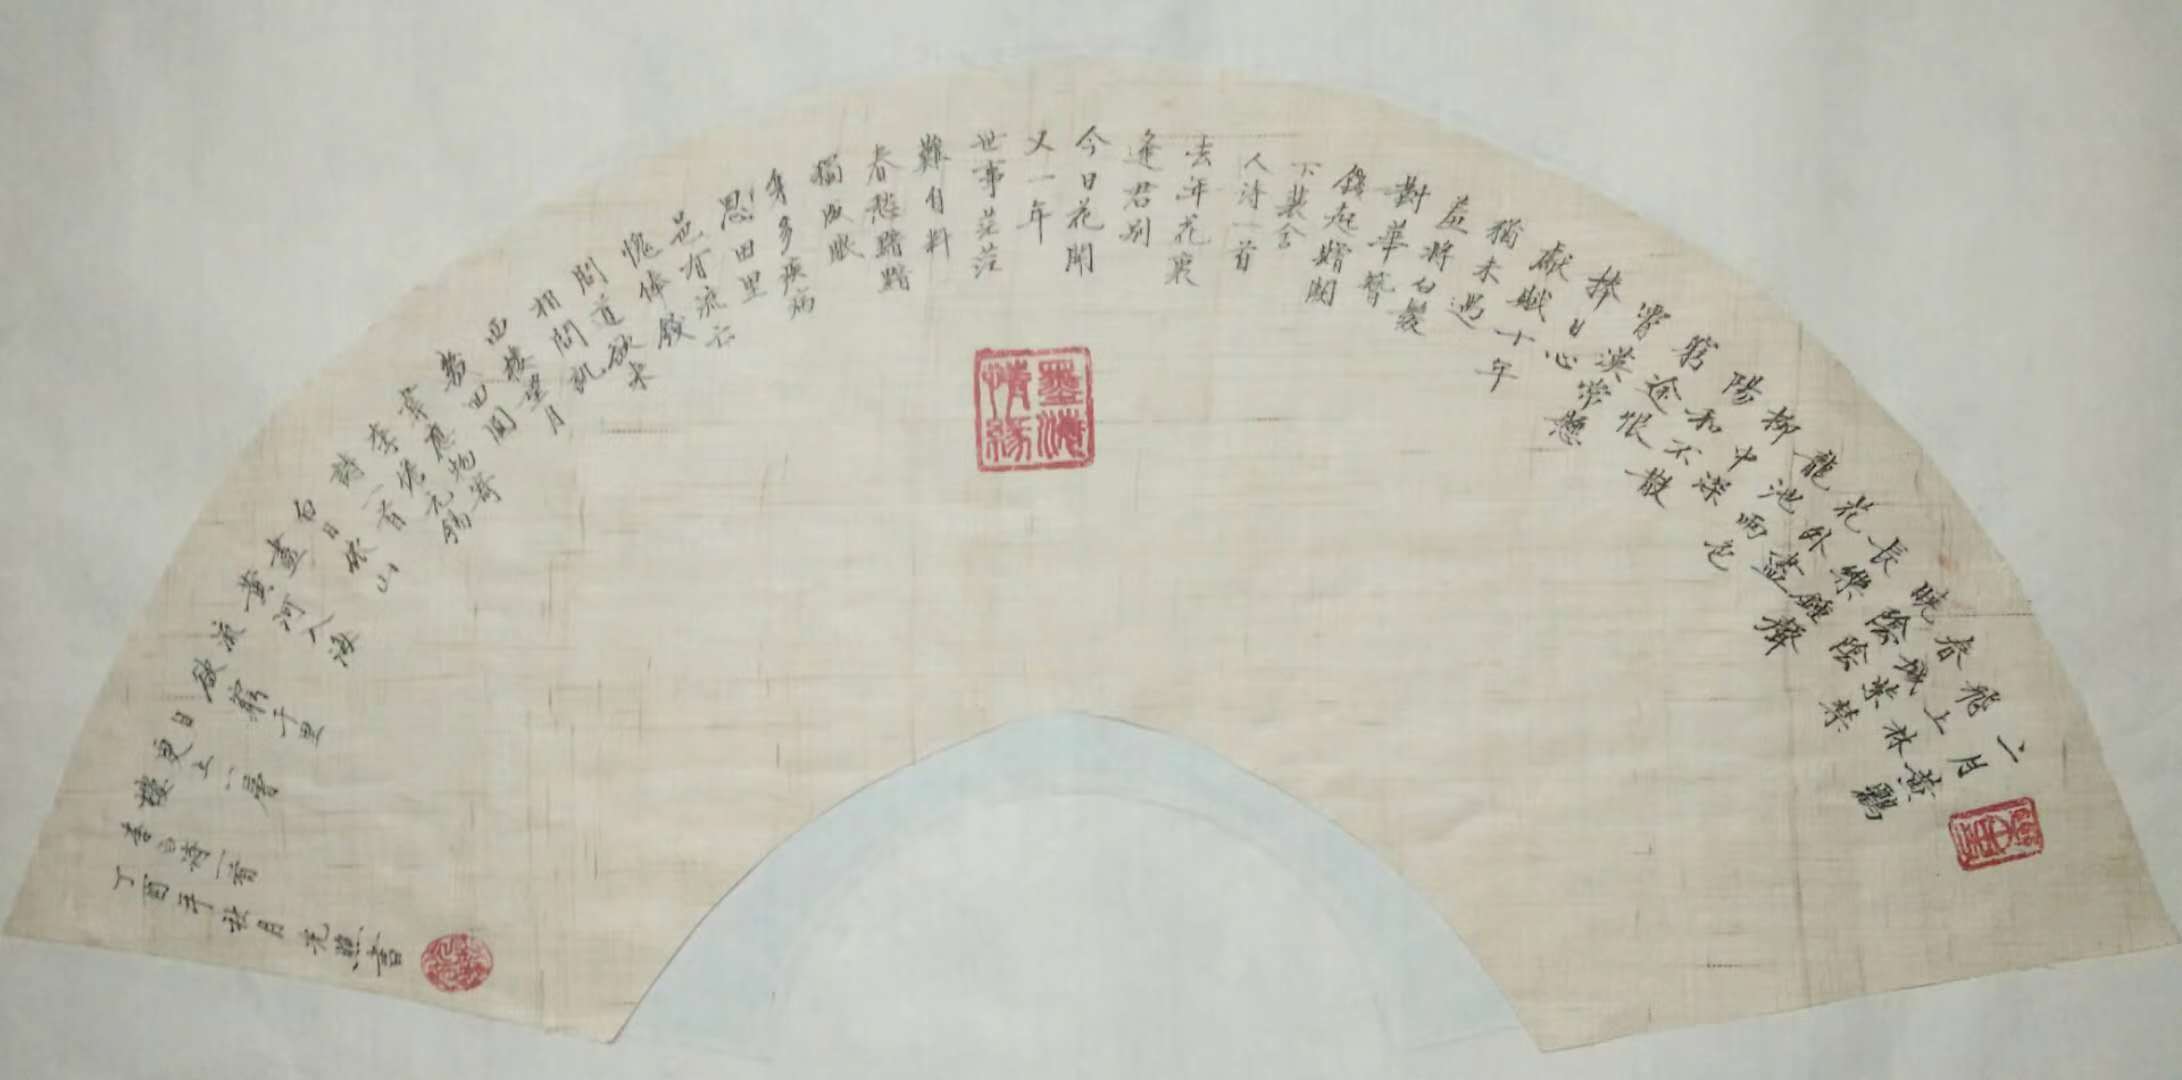 二月黄鸝
飛上林
春城紫禁
曉陰陰
長樂鍾聲
花外盡
龍池雨色
柳中深
陽和不散
窮途恨
霄漢常懸
捧日心
獻賦十年
猶未遇
羞將白髮
對華簪
錢起贈闕
下裴舍
人詩一首
去年花裏
逢君別
今日花開
又一年
世事茫茫
難自料
春愁黯黯
獨成眠
身多疾病
思田里
邑有流亡
愧俸錢
聞道欲來
相問訊
西樓望月
幾回圓
韋應物寄
李儋元錫
詩一首
白日依山
盡
黄河入海
流
欲窮千里
目
更上一層
樓
李白詩一首
丁酉年秋月光照書
墨海情緣